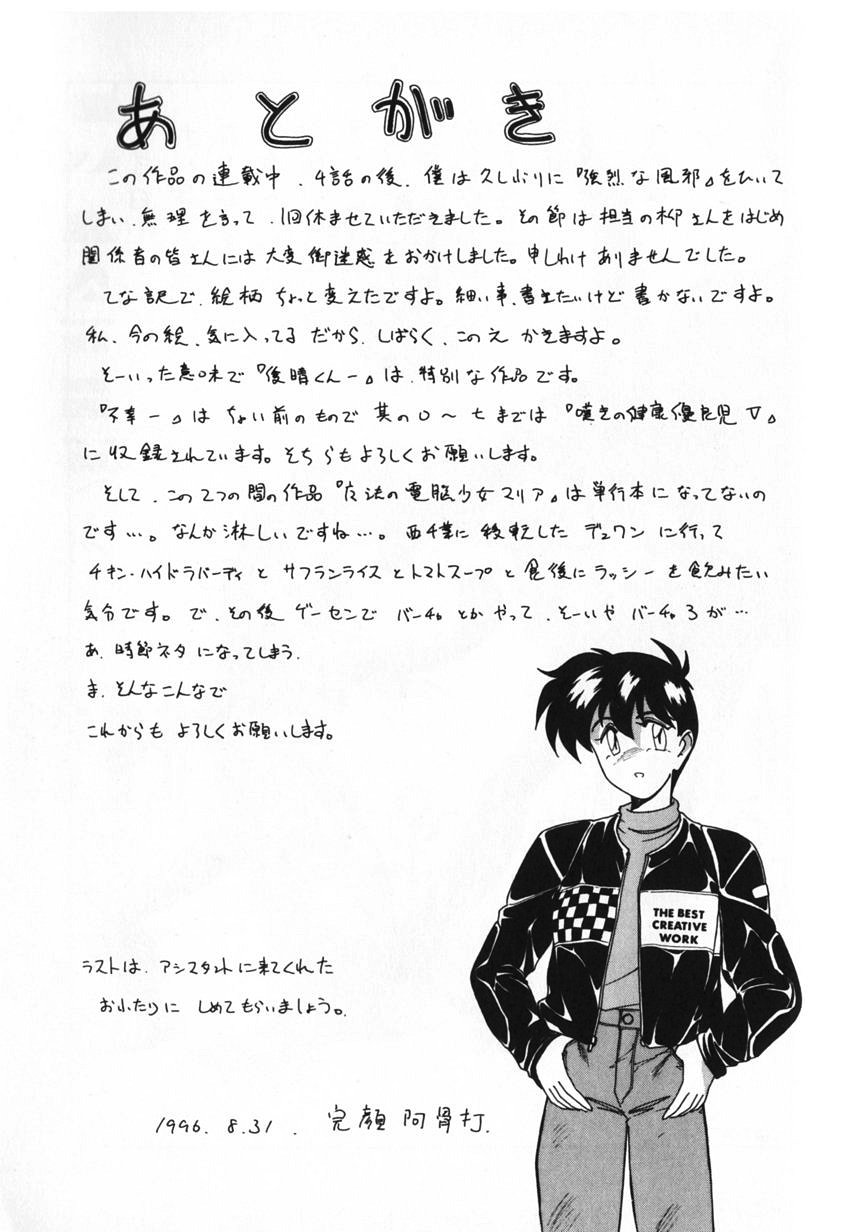 あとがき
この作品の連載中、4話の後、僕は久しぶりに『強烈な風邪』をひいて
しまい、無理を言って、1回休ませていただきました。その節は担当の柳さんをはじめ
関係者の皆さんには大変御迷惑をおかけしました。申しわけありませんでした。
てな訳で、絵柄ちょっと変えたですよ。細い事、書きたいけど書かないですよ。
私、今の絵、気に入ってるだから、しばらく、このえかきますよ。
そーいった意味で『後晴くんー』は、特別な作品です。
『不幸ー』はちょい前のもので其の0〜七までは『嘆きの健康優良児V』
に収録されています。そちらもよろしくお願いします。
そして、この2つの間の作品『魔法の電脳少女マリア』は単行本になってないの
です…。なんか淋しいですね…。西千葉に移転したデュワンに行って
チキン・ハイドラバーディとサフランライスとトマトスープと食後にラッシーを飲みたい
気分です。で、その後ゲーセンでバーチャとかやって、そーいやバーチャ3が…
あ、時節ネタになってしまう、
ま、そんなこんなで
これからもよろしくお願いします。
THE BEST
CREATIVE
WORK
ラストは、アシスタントに来てくれた
おふたりにしめてもらいましょう。
1996. 8.31. 完顔阿骨打.